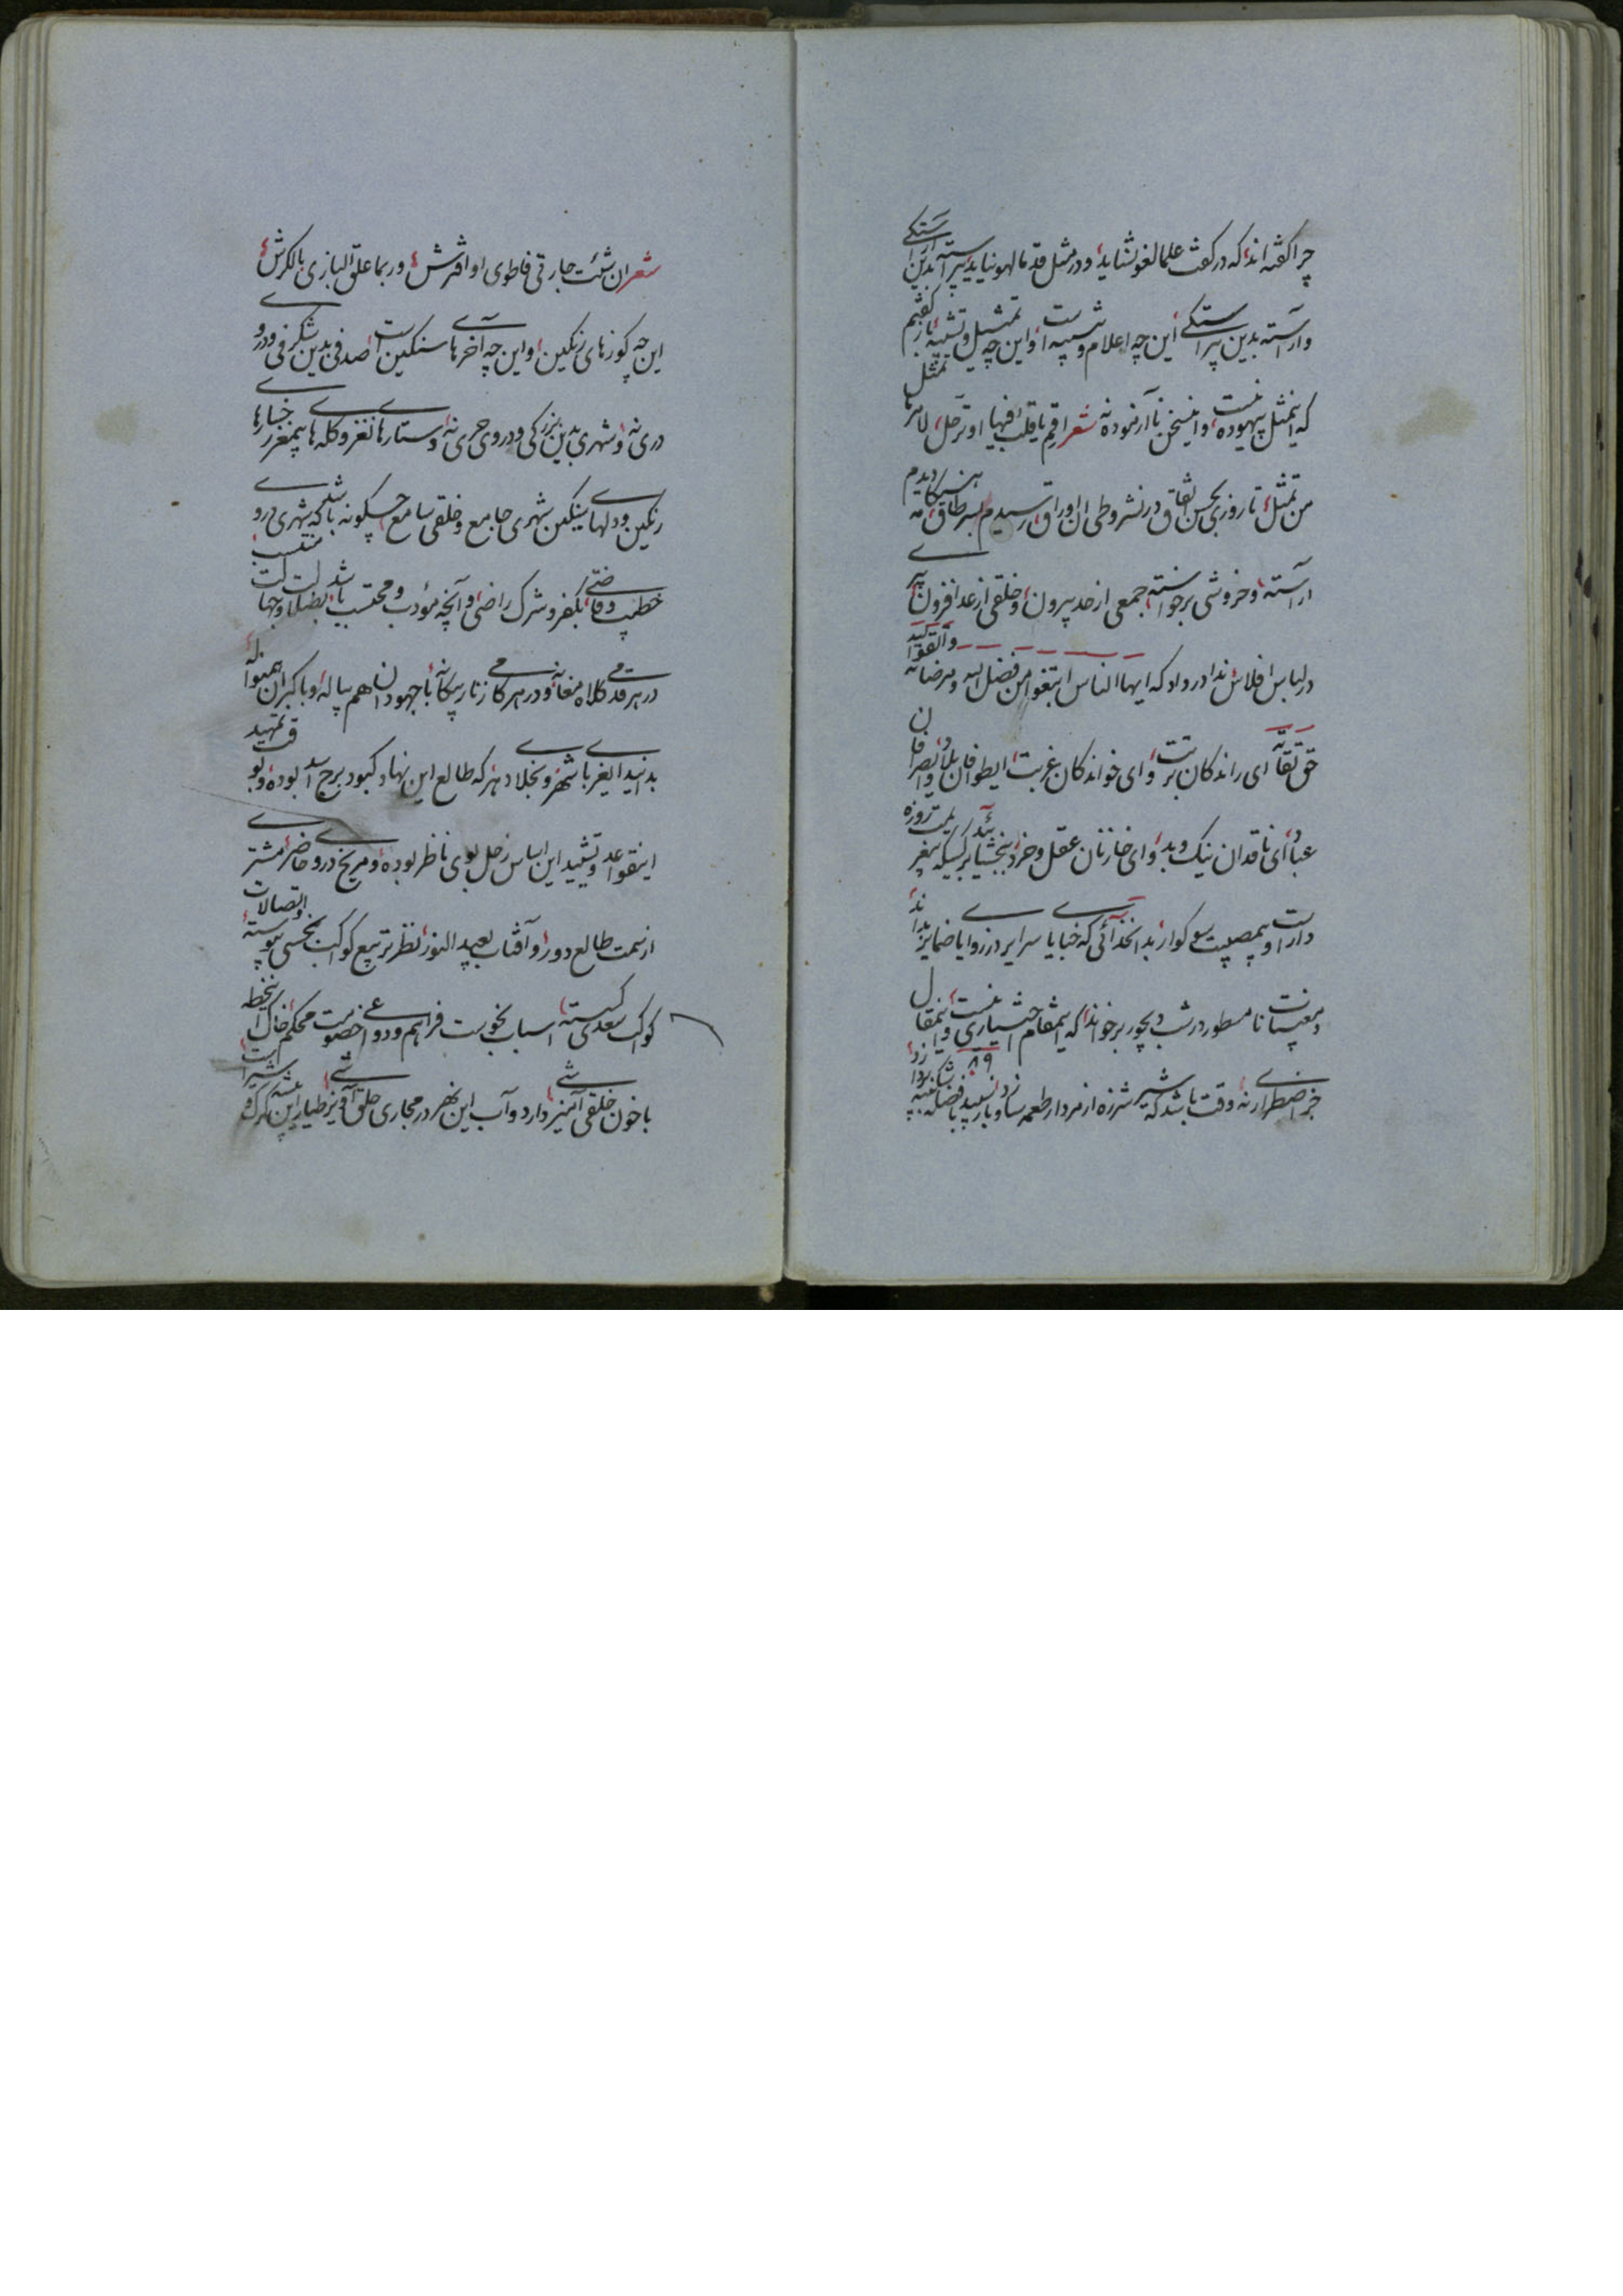 چرا گفته‌اند که در گفت علما لغو نشاید و در مثل قدما لهو نیاید پیراسته بدین آراستگی
و آراسته بدین پیراستگی این چه اعلام و تنبیه است و این چه تمثیل و تشبیه باز گفتم
که اینمثل بیهوده نیست و اینسخن ناآزموده نه شعر اقم یا قلب فیها او ترحل لامر ما
من تمثل تا روزی بحسن اتفاق در نشر و طی آن اوراق رسیدم بسر طاق هنگامه دیدم
آراسته و خروشی برخواسته جمعی از حد بیرون و خلقی از عد افزون پیر
در لباس افلاس ندا در داد که ایها الناس ابتغوا من فضل الله و مرضاته واتقوا الله
حق تقاته ای رانندگان تربت و ای خوانندگان غربت ای طوافان بلاد و ای صرافان
عباد ای ناقدان نیک و بد و ای خازنان عقل و خرد ببخشائید بر کسیکه بیغم یکروزه
دار است و بمصیبت سوگوار بدانخدائی که خبایای سرایر در زوایای ضمایر بداند
و مغیبات نامسطور در شب دیجور برخواند که اینمقام اختیاری نیست و اینمقال
جز اضطراری نه وقت باشد که شیر شرزه از مردار طعمه سازد و باز سپید بفضاله
شعر ان شئت جارتی فاطوی او افترش و ربما علق البازی بالکرش
این چه کوزهای رنگین و این چه آخرهای سنگین است صدفی بدین شگرفی و در او
دری نه و شهری بدین بزرگی و در وی حری نه دستارهای نغز و کله‌های بیمغز رخسارهای
رنگین و دلهای سنگین شهری جامع و خلقی سامع چگونه باشد که شهری در او
خطیب و قاضی بکفر و شرک راضی و آنچه مؤدب و محتسب باشد بضلالت و جهالت منتسب
در هر قدمی کلاه مغانه و در هر گامی زنار بیگانه با جهودان هم پیاله و با گبران همنواله
بدانید ای غربای شهر و نجلای دهر که طالع این نهاد کبود برج اسد بوده و بوقت تمهید
اینقواعد و تشیید این اساس زحل بوی ناظر بوده و مریخ در وی حاضر مشتری
از سمت طالع دور و آفتاب بعید النور نظر تربیع کواکب نحسی پیوسته و اتصالات
کواکب سعدی گسسته اسباب نحوست فراهم و دواعی خصومت محکم خاک اینخطه
با خون خلقی آمیزشی دارد و آب این نهر در مجاری حلق آویزشی طیار این بیشه گرگ و